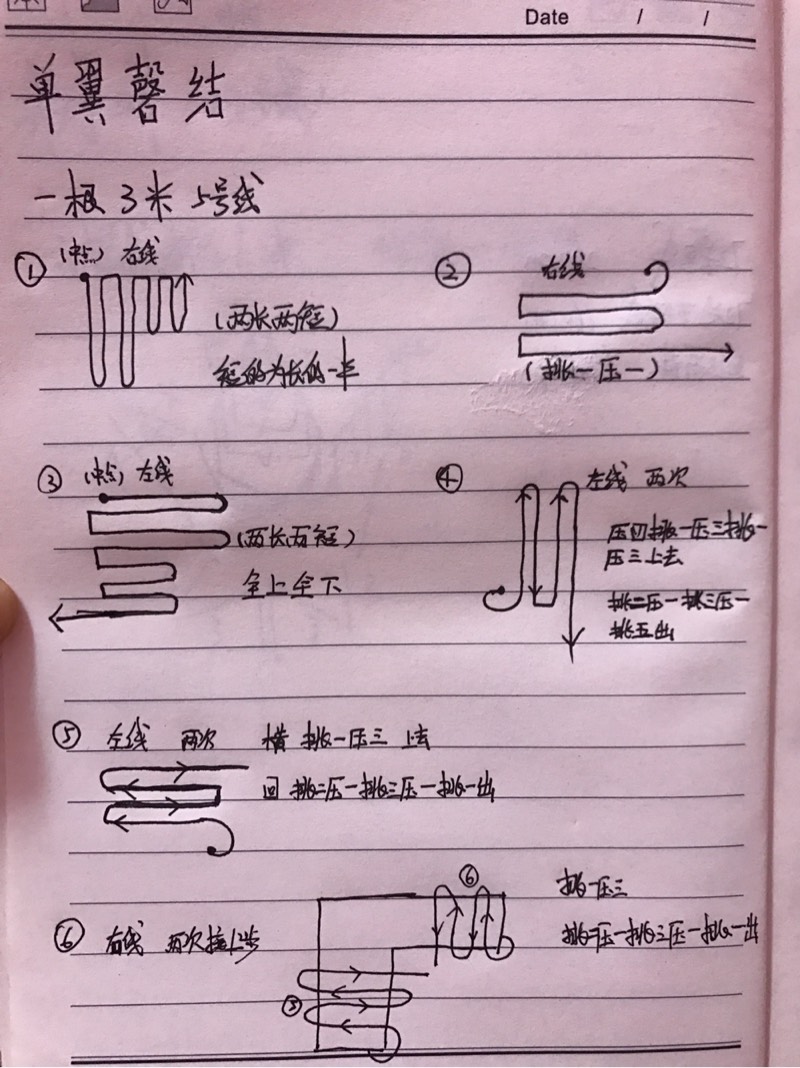 Date / /
单翼磬结
一根3米 5号线
① (中点) 右线
(两长两短)
短的为长的一半
② 右线
(挑一压一)
③ (中点) 左线
(两长两短)
全上全下
④ 左线 两次
压四挑一压三挑一
压三上去
挑二压一挑三压一
挑五出
⑤ 左线 两次 横 挑一压三 上去
回 挑二压一挑三压一挑一出
⑥ 右线 两次接上步
⑥
⑤
挑一压三
挑二压一挑三压一挑一出